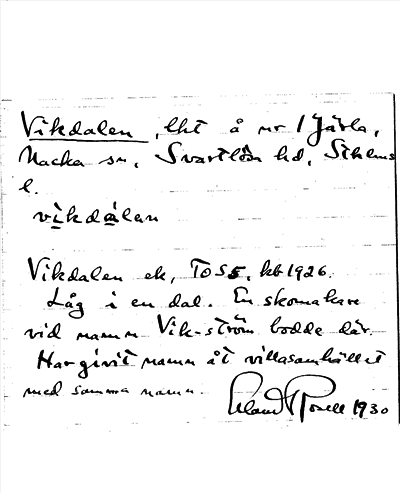 Vikdalen, lht å nr 1 Järla,
Nacka sn, Svartlösa hd, Sthlms
l.
vìkdàlen
Vikdalen ek, TOS5, kb 1926.
Låg i en dal. En skomakare
vid namn Vik-ström bodde där.
Har givit namn åt villasamhället
med samma namn.
Erland Rosell 1930